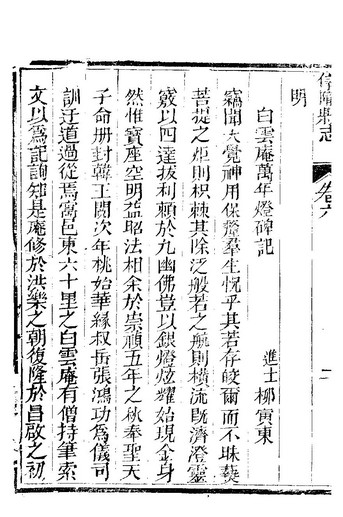 縣志
卷六
明
白雲庵萬年燈碑記
進士 柳寅東
竊聞大覺神用保釐羣生怳乎其若存皎爾而不昧爇
菩提之炬則枳棘其除泛般若之航則橫流旣濟澄靈
竅以四達拔利賴於九幽佛豈以銀燈炫耀始現金身
然惟寳座空明益昭法相余於崇禎五年之秋奉聖天
子命册封韓王閼次年桃始華緣叔岳張鴻功爲儀司
訓迂道過從焉寓邑東六十里之白雲庵有僧持筆索
文以爲記詢知是庵修於洪樂之朝復隆於昌啟之初